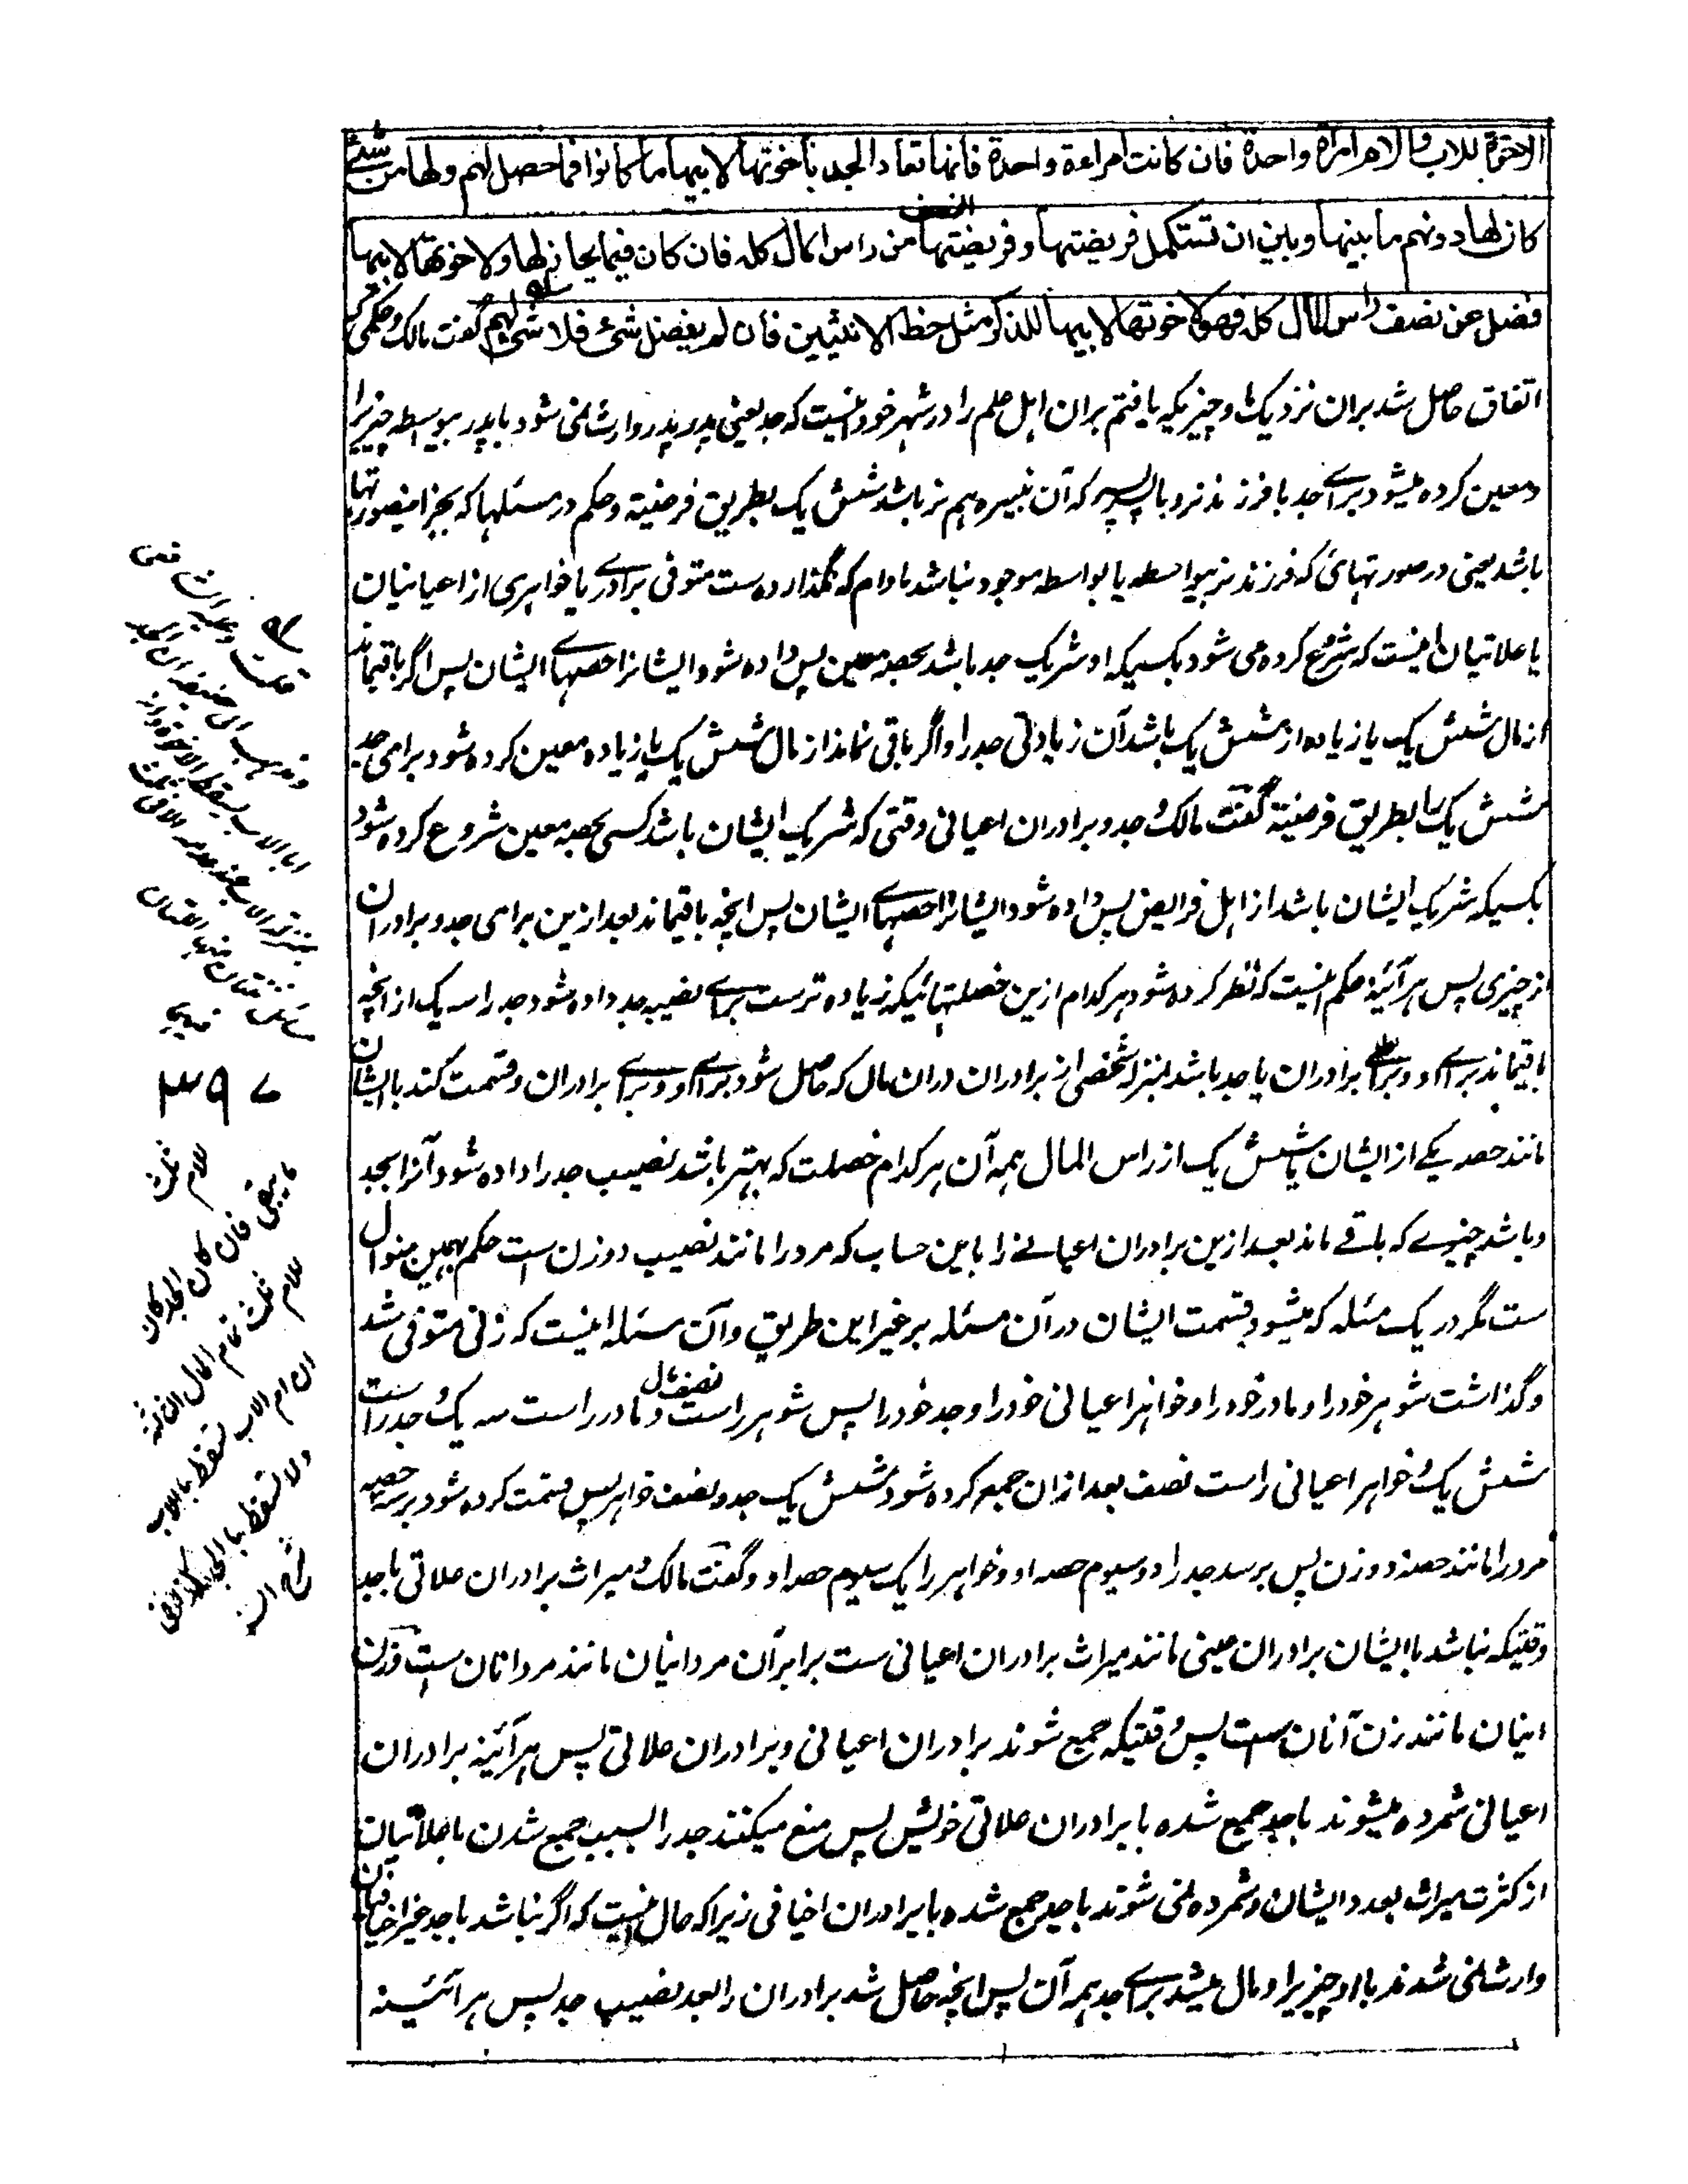 الاخوة للاب والام امراة واحدة فان كانت امراءة واحدة فانها تعاد الجد باخوتها لابيها ما كانوا فما حصل لهم ولها من شئ
كان لها دونهم ما بينها وبين ان تستكمل فريضتها وفريضتها النصف من راس المال كله فان كان فيما يحاز لها ولاخوتها لابيها
فضل عن نصف راس المال كله فهو لاخوتها لابيها للذكر مثل حظ الانثيين فان لم يفضل شئ فلا شئ لهم گفت مالک وحکمی که
اتفاق حاصل شد بران نزدیک ما وچیزیکه یافتم بران اہل علم را در شہر خود اینست که جد یعنی پدر پدر وارث نمی شود با پدر بیواسطه چیزیرا
ومعین کرده میشود برای جد با فرزند نر وبا پسر پسر که آن نبیره ہم نر باشد شش یک بطریق فرضیة وحکم در مسئلہا که بجز اینصورتہا
باشد یعنی در صورتہائی که فرزند نر بیواسطه یا بواسطه موجود نباشد مادام که نگذارده ست متوفی برادری یا خواہری از اعیانیان
یا علاتیان اینست که شروع کرده می شود بکسیکه او شریک جد باشد بحصه معین پس داده شود ایشانرا حصہای ایشان پس اگر باقیماند
از مال شش یک یا زیاده از شش یک باشد آن زیادتی جد را واگر باقی نماند از مال شش یک یا زیاده معین کرده شود برای جد
شش یک را بطریق فرضیة گفت مالک جد وبرادران اعیانی وقتی که شریک ایشان باشد کسی بحصه معین شروع کرده شود
بکسیکه شریک ایشان باشد از اہل فرایض پس داده شود ایشانرا حصہای ایشان پس انچه باقیماند بعد ازین برای جد وبرادران
از چیزی پس ہر آئینه حکم اینست که نظر کرده شود ہر کدام ازین خصلتہائیکه زیاده تر ست برای نصیب جد داده شود جد را سه یک از انچه
باقیماند برای او وبرای برادران یا جد باشد بمنزله شخصی از برادران دران مال که حاصل شود برای او وبرای برادران وقسمت کند با ایشان
مانند حصه یکے از ایشان یا شش یک از راس المال ہمه آن ہر کدام خصلت که بہتر باشد نصیب جد را داده شود آنرا بجد
وباشد چیزے که باقے ماند بعد ازین برادران اعیانے را باین حساب که مرد را مانند نصیب دو زن است حکم بہمین منوال
ست مگر در یک مسئله که میشود قسمت ایشان در آن مسئله بر غیر این طریق وآن مسئله اینست که زنی متوفی شد
وگذاشت شوہر خود را ومادر خود را وخواہر اعیانی خود را وجد خود را پس شوہر راست نصف مال ومادر راست سه یک وجد راست
شش یک وخواہر اعیانی راست نصف بعد ازان جمع کرده شود شش یک جد ونصف خواہر پس قسمت کرده شود بر سه حصه
مرد را مانند حصه دو زن پس برسد جد را دو سیوم حصه او وخواہر را یک سیوم حصه او وگفت مالک میراث برادران علاتی با جد
وقتیکه نباشد با ایشان برادران عینی مانند میراث برادران اعیانی ست برابر آن مرد اینان مانند مرد آنان ست وزن
اینان مانند زن آنان ست پس وقتیکه جمع شوند برادران اعیانی وبرادران علاتی پس ہر آئینه برادران
اعیانی شمرده میشوند با جد جمع شده با برادران علاتی خویش پس منع میکنند جد را بسبب جمع شدن با علاتیان
از کثرت میراث بعدد ایشان وشمرده نمی شوند با جد جمع شده با برادران اخیافی زیرا که حال اینست که اگر نباشد با جد غیر اخیافیان
وارث نمی شدند با او چیزیرا ومال میشد برای جد ہمه آن پس انچه حاصل شد برادران را بعد نصیب جد پس ہر آئینه
قلت
۳۹۷
للام ثلث
ما یبقی فان کان الجد کان
للام ثلث تمام المال
ان ام الاب تسقط بالاب
ولا تسقط بالجد